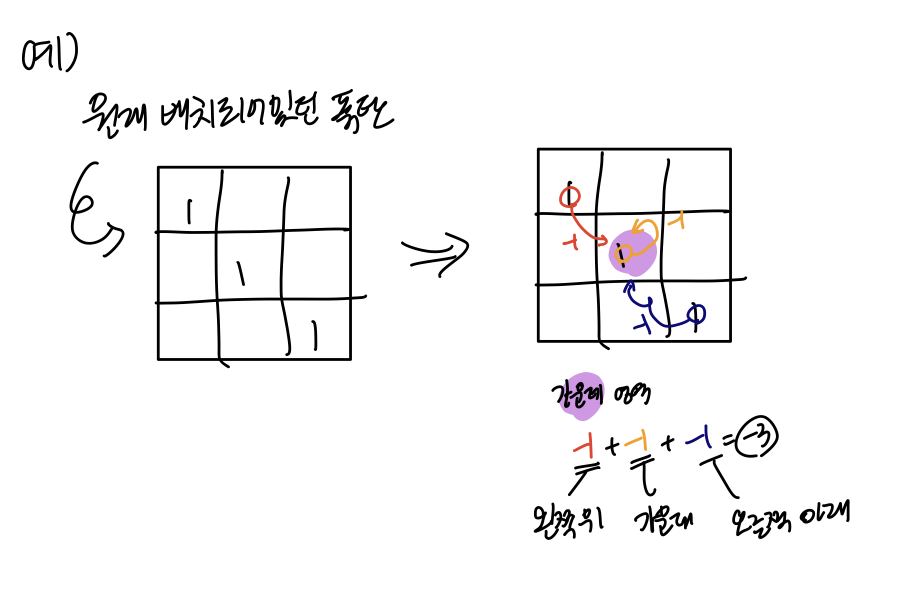 예)
원래 배치되어있던 폭탄
1
1
1
1
-1
-1
1
-1
1
가운데 영역
-1 + -1 + -1 = -3
왼쪽위 가운데 오른쪽 아래